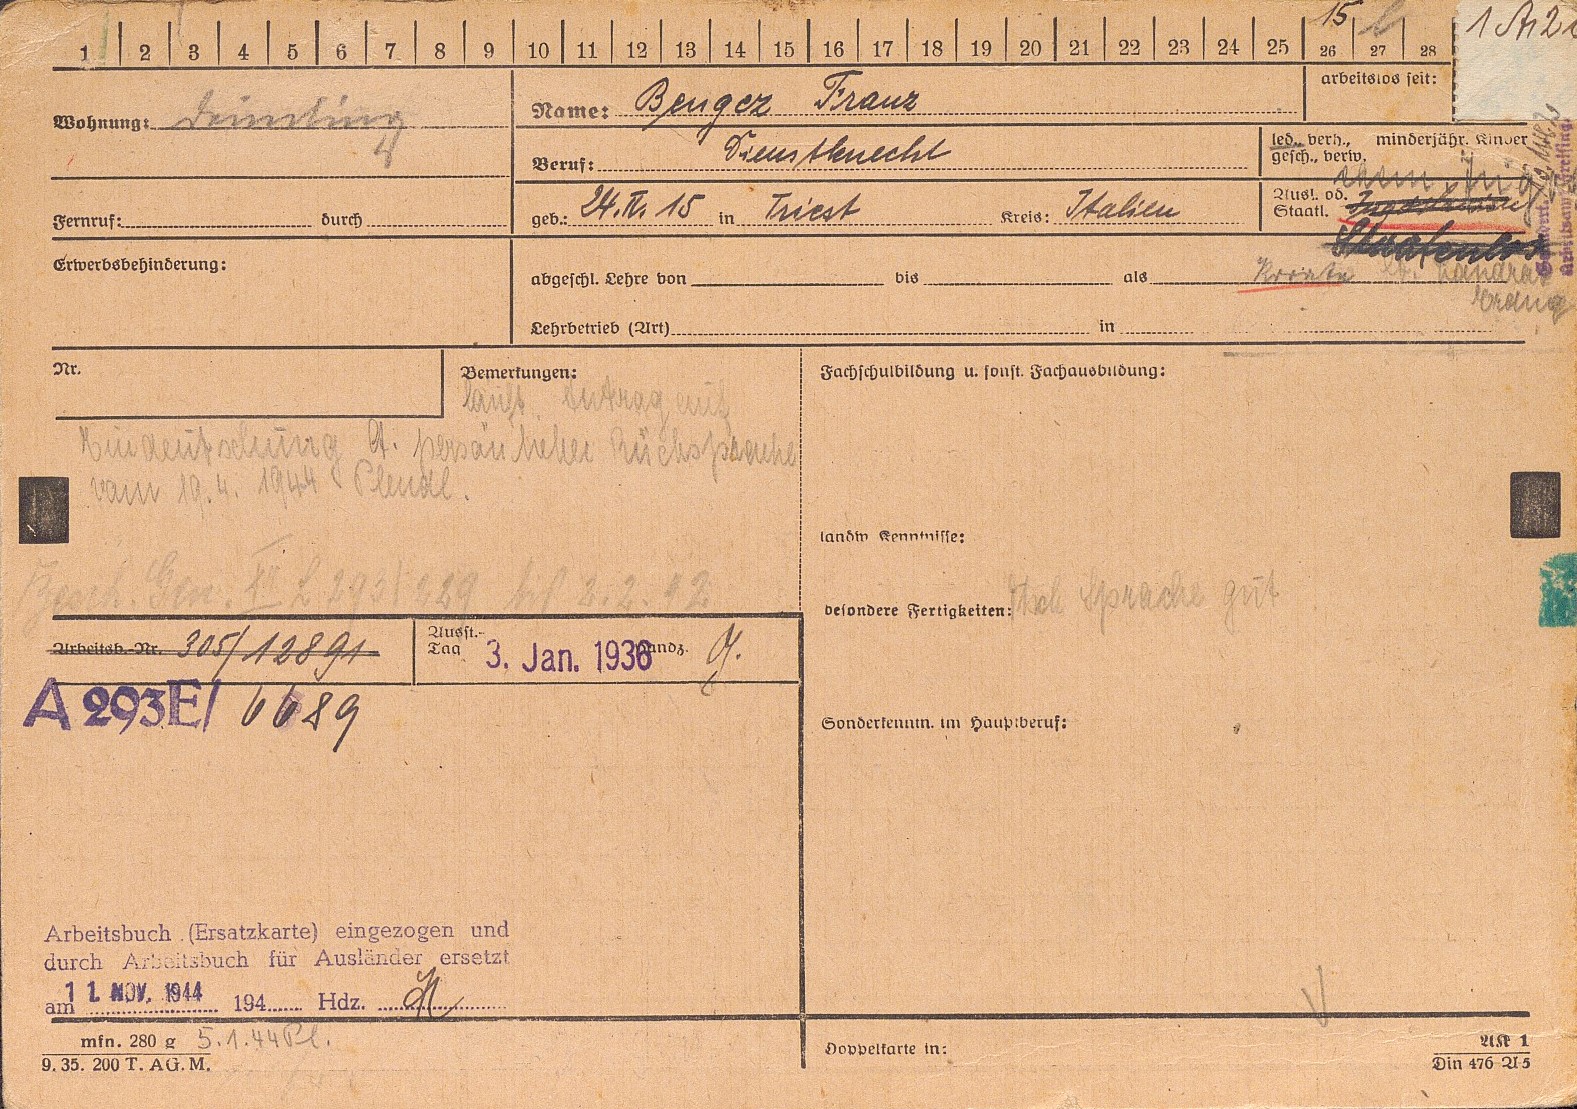 1 2 3 4 5 6 7 8 9 10 11 12 13 14 15 16 17 18 19 20 21 22 23 24 25 26 27 28
15
Wohnung:
Name: Bengez Franz
arbeitslos seit:
Beruf: Dienstknecht
led., verh., minderjähr. Kinder
gesch., verw.
Fernruf: durch
geb.: 24. IV. 15 in Triest Kreis: Italien
Ausl. od.
Staatl.
Staatenlos
Erwerbsbehinderung:
abgeschl. Lehre von bis als
Kroate lt. Landrat
Erding
Lehrbetrieb (Art) in
Nr.
Bemerkungen:
Fachschulbildung u. sonst. Fachausbildung:
läuft Antrag auf
Eindeutschung lt. persönlicher Rücksprache
vom 19.4. 1944 Plendl.
landw Kenntnisse:
Besch. Gen. L 293/229 bis 2.2.42
besondere Fertigkeiten: dtsch Sprache gut
Arbeitsb.-Nr. 305/12891
Ausst.-
Tag 3. Jan. 1936 Handz.
A 293E/ 6689
Sonderkenntn. im Hauptberuf:
Arbeitsbuch (Ersatzkarte) eingezogen und
durch Arbeitsbuch für Ausländer ersetzt
am 11. NOV. 1944 194 Hdz.
mfn. 280 g 5.1.44 Pl.
9. 35. 200 T. AG. M.
Doppelkarte in:
AK 1
Din 476 A 5